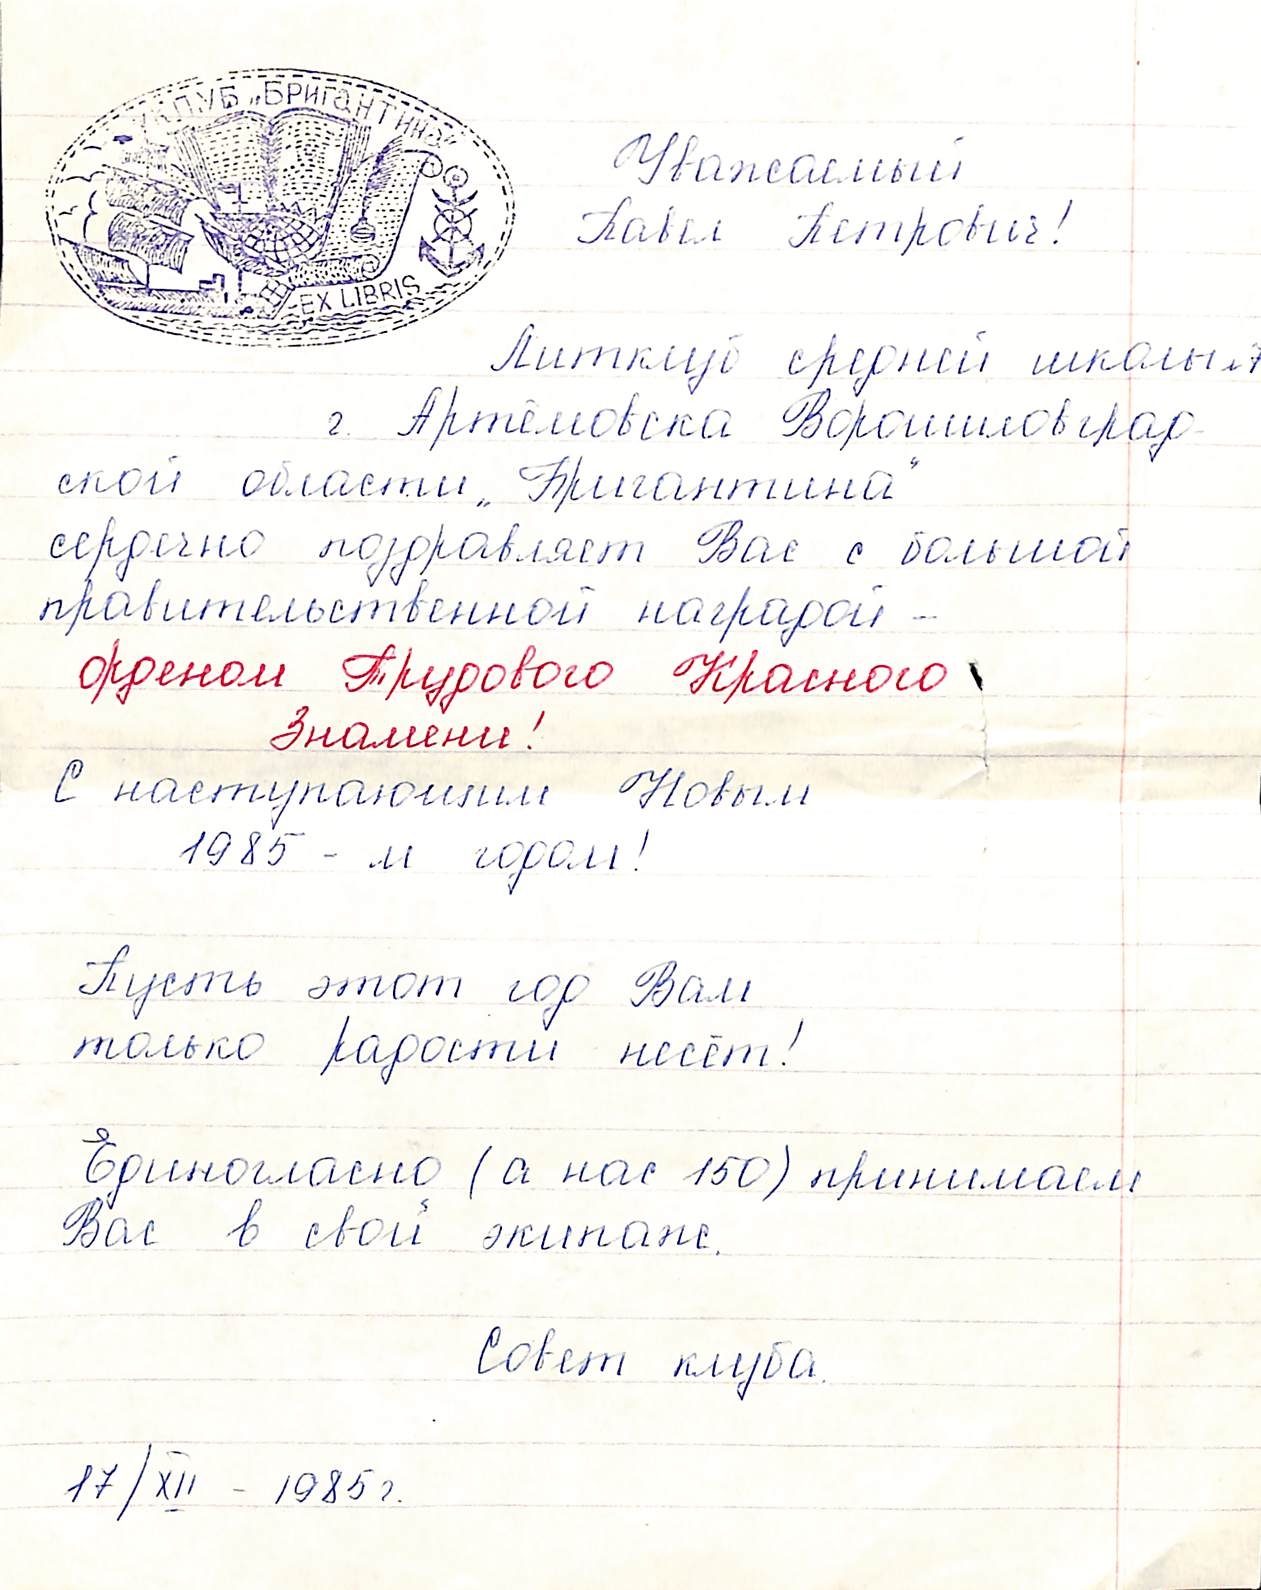 КЛУБ „БРИГАНТИНА“
EX LIBRIS
Уважаемый
Павел Петрович!
Литклуб средней школы
г. Артёмовска Ворошиловград-
ской области „Бригантина“
сердечно поздравляет Вас с большой
правительственной наградой –
орденом Трудового Красного
Знамени!
С наступающим Новым
1985 - м годом!
Пусть этот год Вам
только радости несёт!
Единогласно (а нас 150) принимаем
Вас в свой экипаж.
Совет клуба.
17/XII - 1985 г.